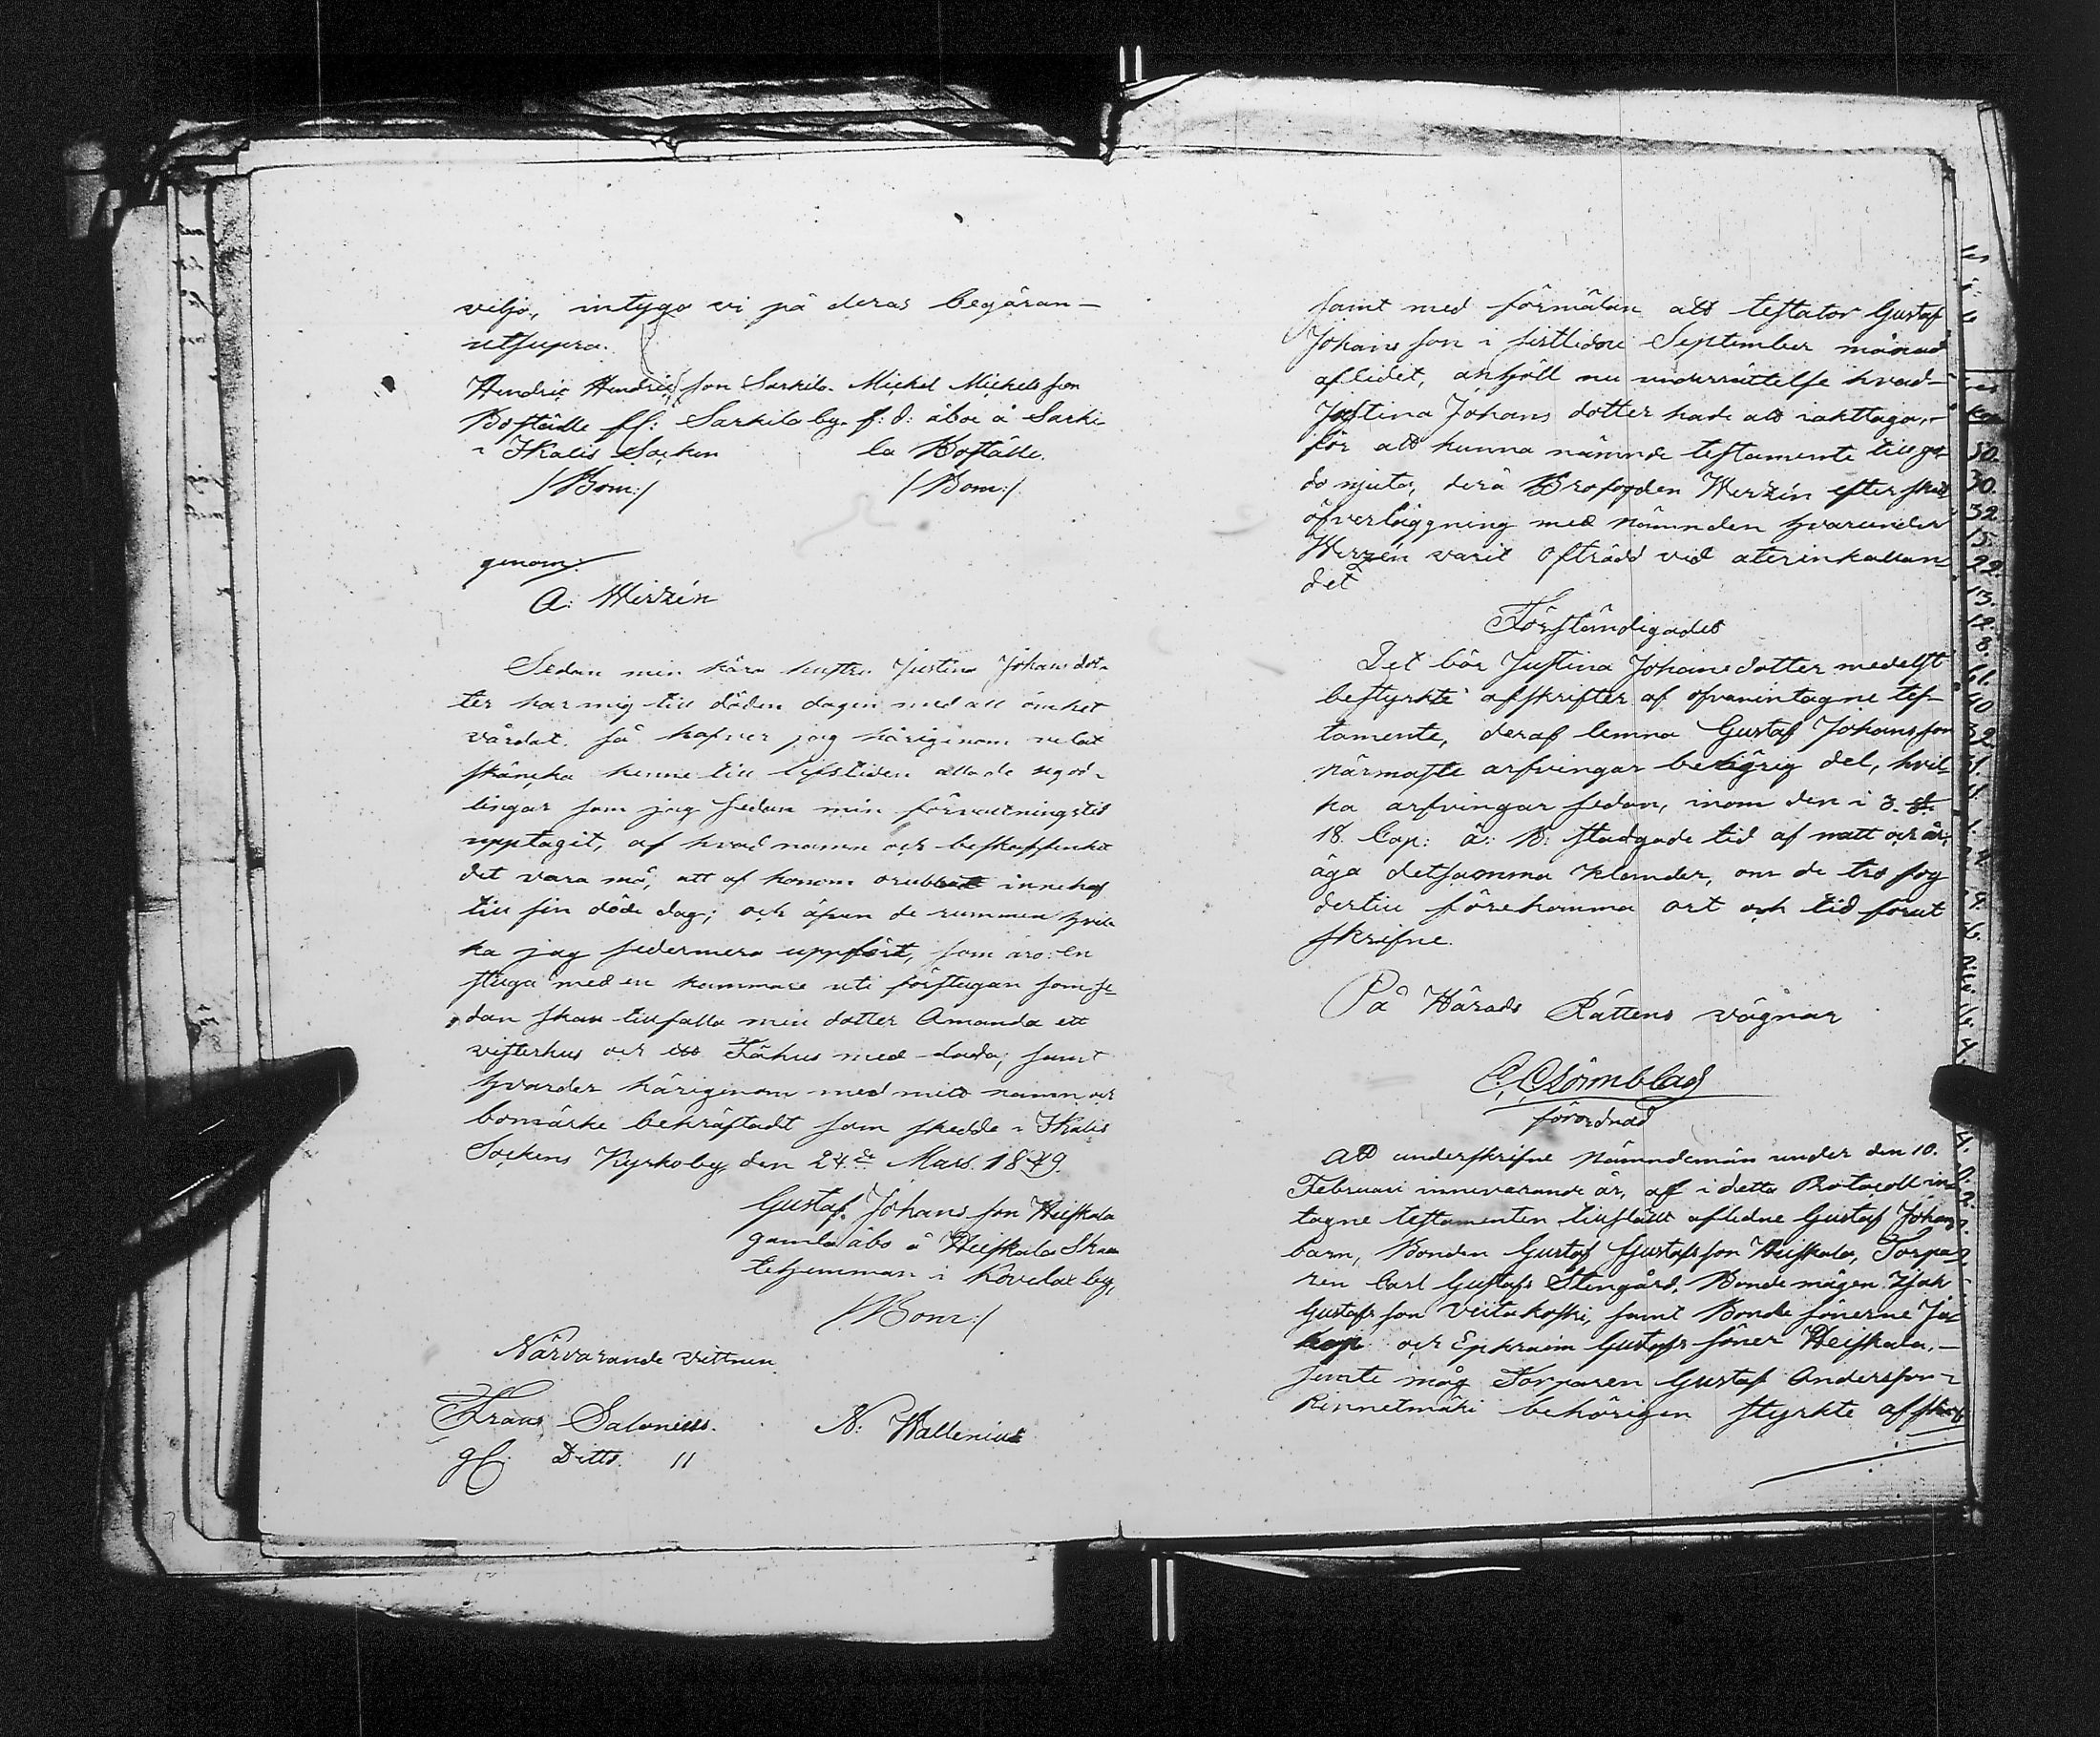 viljo, intyga vi på deras begäran
utsupra.
Hendric Hendricsson Sarkila Michel Michelsson
Boställe Sarkila by f: d: åboe å Sarki-
i Ikalis Socken la Boställe.
/Bom:/ /Bom:/
genom:
A: Wirzén
Sedan min kära hustru Justina Johansdot-
ter har mig till döden dagen med all ömhet
vårdat, så hafver jag härigenom velat
skäncka henne till lifstiden alla de ägod-
lingar som jag sedan min förvaltningstid
upptagit, af hvad namn och beskaffenhet
det vara må, att af honom orubbadt innehaf
till sin döde dag; och äfven de rummen hvil-
ka jag sedermera uppfört, som äro: en
stuga med en kammare uti förstugan som se-
dan skall tillfalla min dotter Amanda ett
visterhus och ett Fähus med lada; samt
hvarder härigenom med mitt namn och
bomärke bekräftadt som skedde i Ikalis
Sockens Kyrkoby den 24de Mars 1849.
Gustaf Johansson Heiskala
gamla åbo å Heiskala Skat
tehemman i Kovelax by,
/Bom:/
Närvarande vittnen
Frans Salonius. N: Wallenius
Ditto 11
samt med förmälan att testator Gustaf
Johansson i sistledne September månad
aflidet, anhöll nu underrättelse hvad
Justina Johansdotter hade att iakttaga,
för att kunna nämnde testamente till go-
do njuta, derå Brofogden Werzén efter skedd
öfverläggning med nämnden hvarunder
Werzén varit afträdd vid återinkallan-
det
Förständigades
Det bör Justina Johansdotter medelst
bestyrkte afskrifter af ofvanintagne tes-
tamente, deraf lemna Gustaf Johansson
närmaste arfvingar behörig del, hvil-
ka arfvingar sedan, inom den i 3. §.
18. Cap: Ä: B: stadgade tid af natt och år,
äga detsamma klander, om de tro sig
dertill förekomma ort och tid förut
skrifne.
På Härads Rättens vägnar
förordnad
Att underskrifne Nämndemän under den 10.
Februari innevarande år, af i detta Protocoll in-
tagne testamenten tillställt aflidne Gustaf Johans
barn, Bonden Gustaf Gustafsson Heiskala, Torpa-
ren Carl Gustafs Stengård, Bonde mågen Isak
Gustafsson Viitakoski, samt Bonde sönerne Ja
kop och Ephraim Gustafs söner Heiskala,
jemte måg Torparen Gustaf Andersson
Rinnetmäki behörigen styrkte afskrif